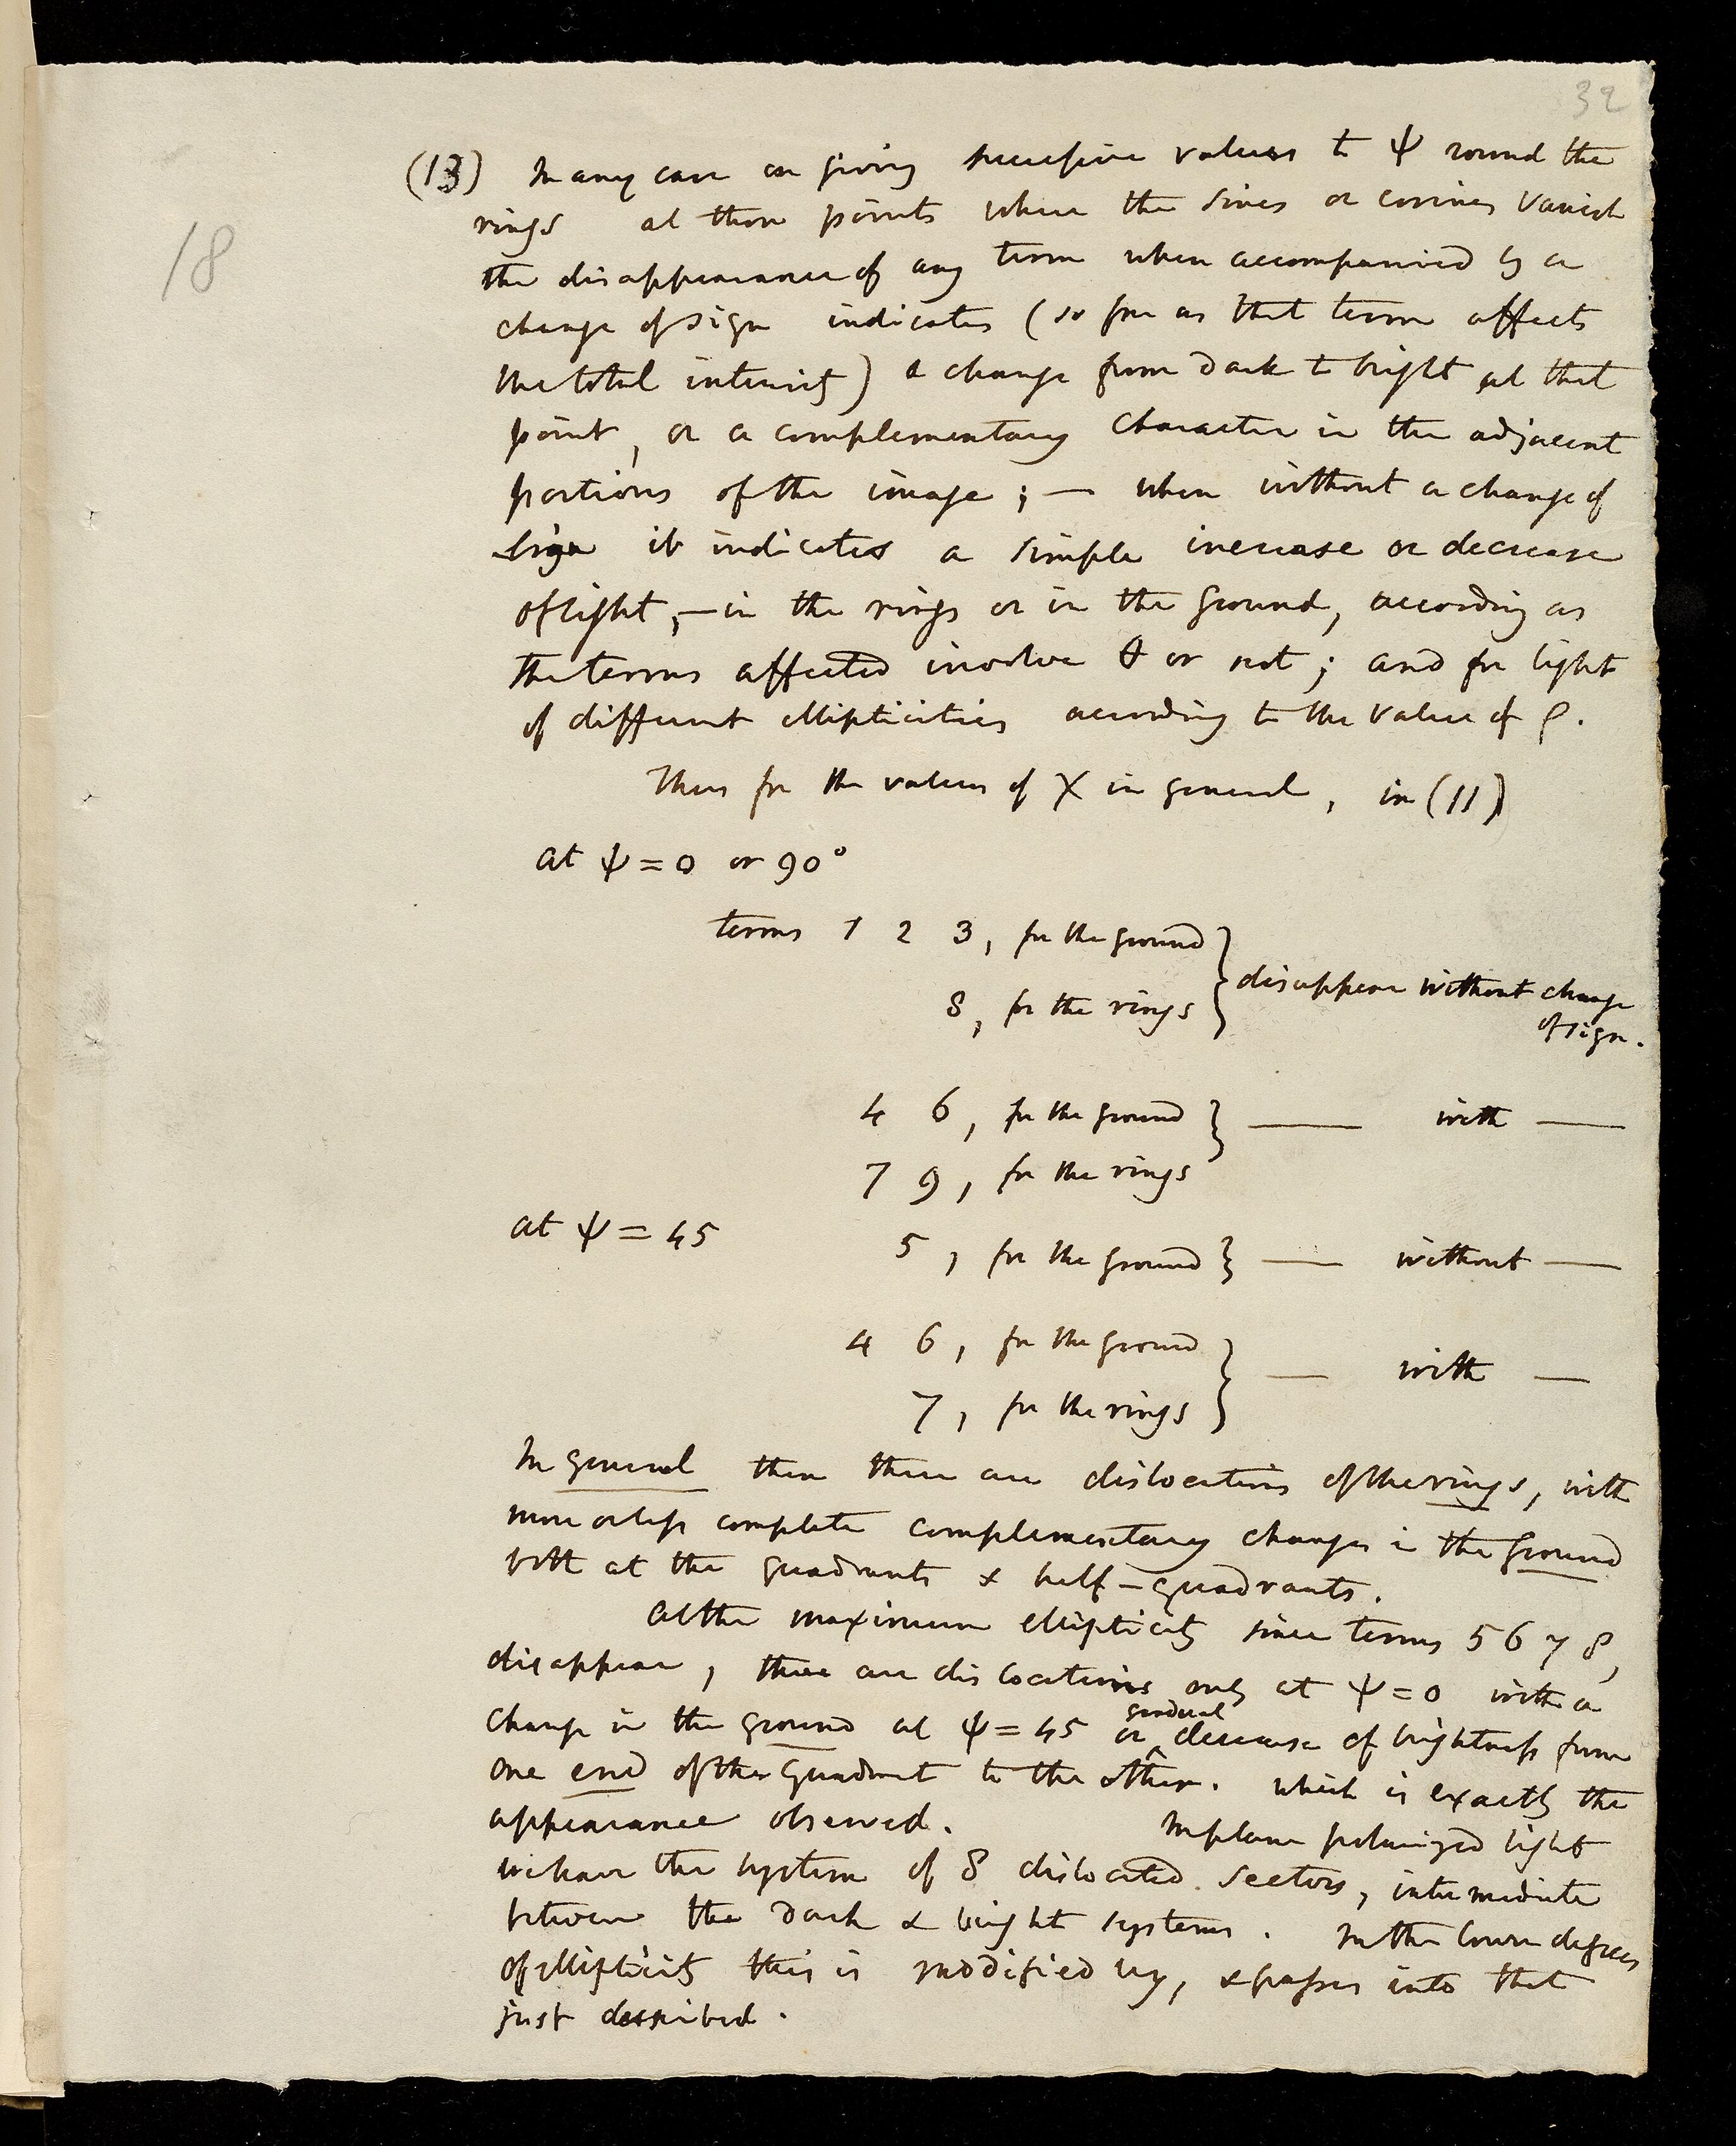 32
18
(13) In any case on giving successive values to ψ round the
rings at those points where the sines or cosines vanish
the disappearance of any term when accompanied by a
change of sign indicates (so far as that term affects
the total intensity) a change from dark to bright at that
point, or a complementary character in the adjacent
portions of the image ; — when without a change of
sign it indicates a simple increase or decrease
of light, — in the rings or in the ground, according as
the terms affected involve θ or not ; and for light
of different ellipticities according to the value of ρ.
Thus for the values of χ in general, in (11)
at ψ = 0 or 90°
terms 1 2 3, for the ground
8, for the rings } disappear without change
of sign.
4 6, for the ground } —— with ——
7 9, for the rings
at ψ = 45
5, for the ground } —— without ——
4 6, for the ground
7, for the rings } — with —
In general then there are dislocations of the rings, with
more or less complete complementary changes in the ground
both at the quadrants & half-quadrants.
At the maximum ellipticity since terms 5 6 7 8,
disappear, there are dislocations only at ψ = 0 with a
change in the ground at ψ = 45 or gradual decrease of brightness from
one end of the quadrant to the other. which is exactly the
appearance observed. In plane polarized light
we have the system of 8 dislocated sectors, intermediate
between the dark & bright systems. In the lower degrees
of ellipticity this is modified by, & passes into that
just described.